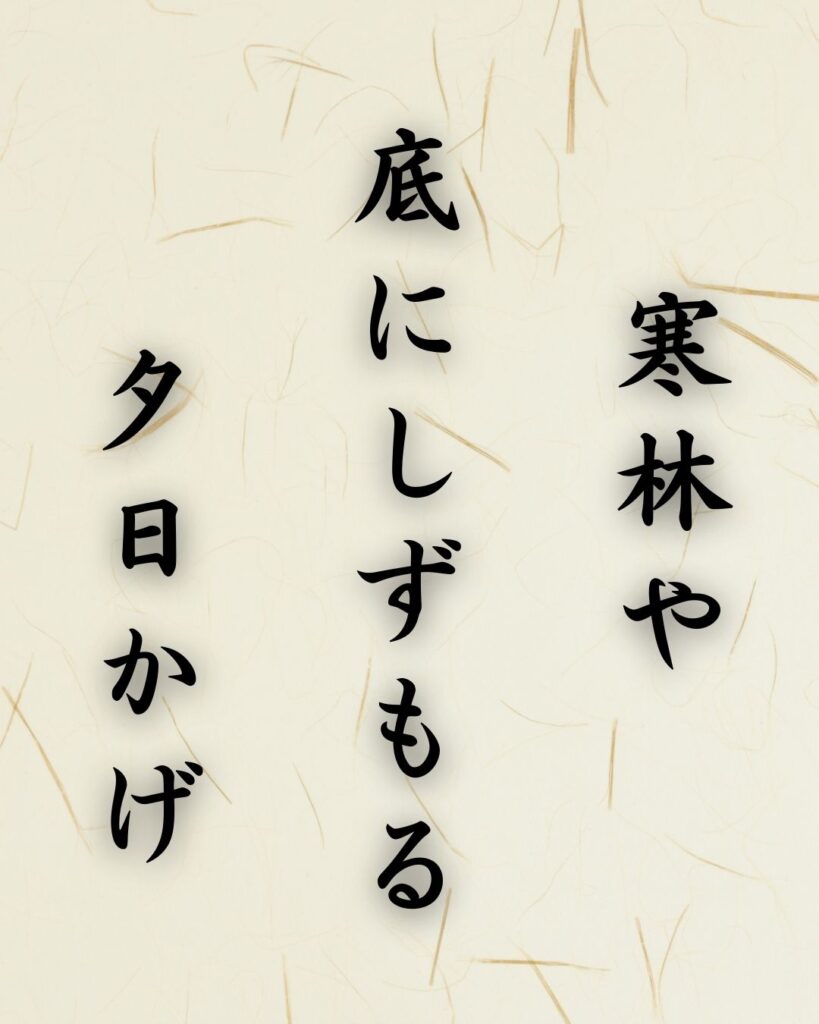 寒林や
底にしずもる
夕日かげ